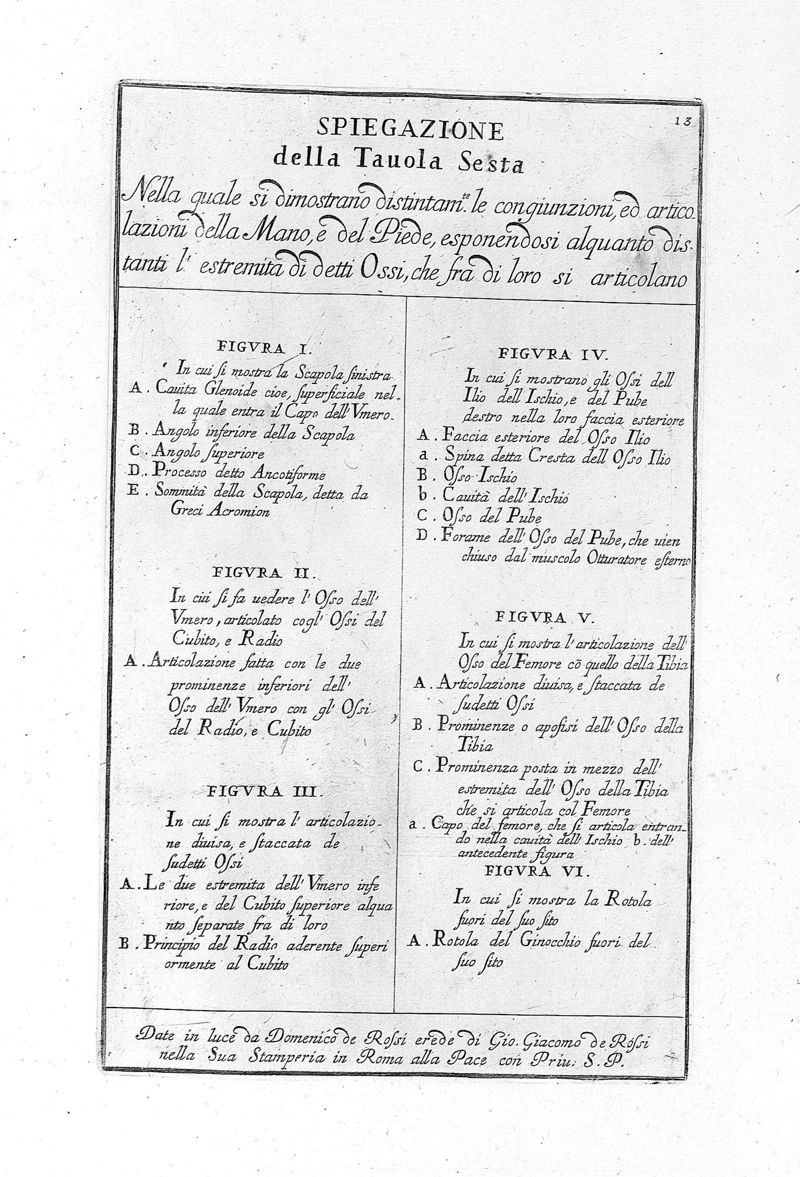 13
SPIEGAZIONE
della Tauola Sesta
Nella quale si dimostrano distintam.te le congiunzioni, ed artico
lazioni della Mano, e del Piede, esponendosi alquanto dis-
tanti l' estremita di detti Ossi, che fra di loro si articolano
FIGVRA I.
In cui ſi mostra la Scapola ſinistra
A. Cauita Glenoide cioe, ſuperficiale nel-
la quale entra il Capo dell'Vmero.
B. Angolo inferiore della Scapola
C. Angolo ſuperiore
D. Processo detto Ancotiforme
E. Sommità della Scapola, detta da
Greci Acromion
FIGVRA II.
In cui ſi fa uedere l'Oſso dell'
Vmero, articolato cogl' Oſsi del
Cubito, e Radio
A. Articolazione fatta con le due
prominenze inferiori dell'
Oſso dell'Vmero con gl' Oſsi
del Radio, e Cubito
FIGVRA III.
In cui ſi mostra l' articolazio-
ne diuisa, e ſtaccata de
ſudetti Oſsi
A. Le due estremita dell'Vmero infe
riore, e del Cubito ſuperiore alqua
nto ſeparate fra di loro
B. Principio del Radio aderente ſuperi
ormente al Cubito
FIGVRA IV.
In cui ſi mostrano gli Oſsi dell
Ilio dell'Ischio, e del Pube
destro nella loro faccia esteriore
A. Faccia esteriore del Oſso Ilio
a. Spina detta Cresta dell Oſso Ilio
B. Oſso Ischio
b. Cauità dell'Ischio
C. Oſso del Pube
D. Forame dell'Oſso del Pube, che uien
chiuso dal muscolo Otturatore eſterno
FIGVRA V.
In cui ſi mostra l'articolazione dell'
Oſso del Femore cō quello della Tibia
A. Articolazione diuisa, e ſtaccata de
ſudetti Oſsi
B. Prominenze o apofisi dell'Oſso della
Tibia
C. Prominenza posta in mezzo dell'
estremita dell' Oſso della Tibia
che si articola col Femore
a. Capo del femore, che ſi articola entran-
do nella cauità dell'Ischio b. dell'
antecedente figura
FIGVRA VI.
In cui ſi mostra la Rotola
fuori del ſuo ſito
A. Rotola del Ginocchio fuori del
ſuo ſito
Date in luce da Domenico de Roſsi erede di Gio. Giacomo de Roſsi
nella Sua Stamperia in Roma alla Pace con Priu: S.P.